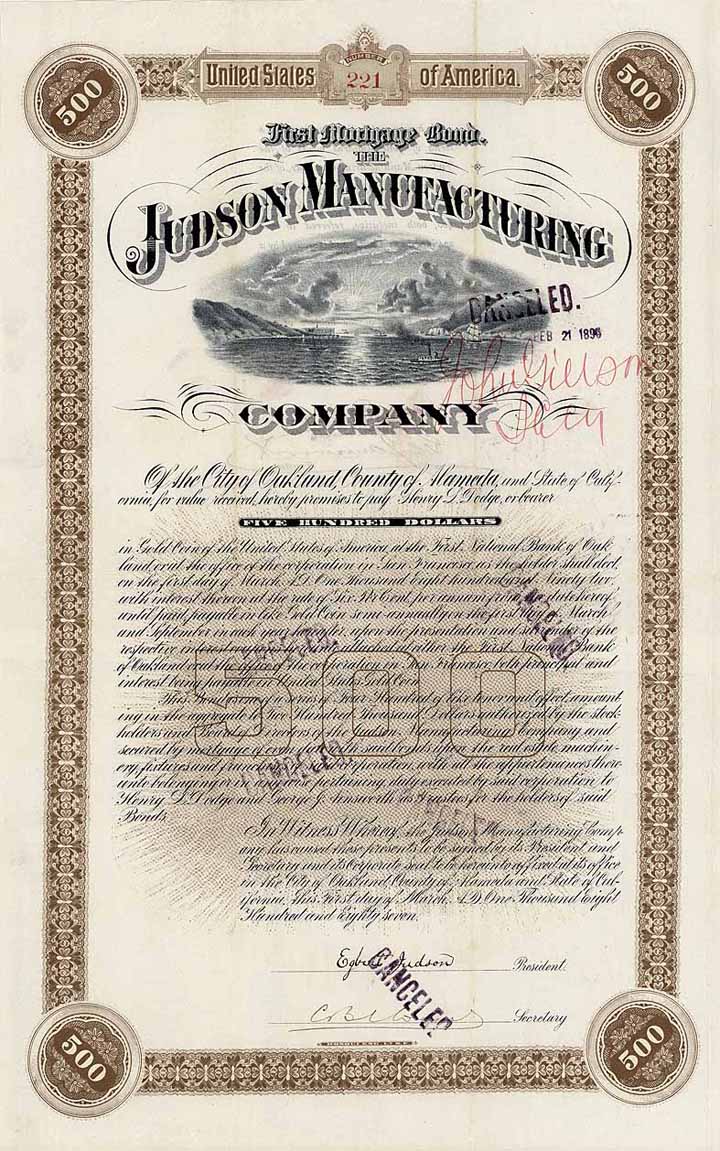 500
500
NUMBER
United States 221 of America.
First Mortgage Bond.
THE
JUDSON MANUFACTURING
CANCELED.
FEB 21 189
John
Secy
COMPANY
Of the City of Oakland, County of Alameda, and State of Calif-
ornia, for value received, hereby promises to pay Henry L. Dodge, or bearer
FIVE HUNDRED DOLLARS
in Gold Coin of the United States of America, at the First National Bank of Oak-
land, or at the office of the corporation in San Francisco, as the holder shall elect,
on the first day of March, A.D. One Thousand Eight hundred and Ninety two,
with interest thereon at the rate of Six Per Cent. per annum from the date hereof
until paid, payable in like Gold Coin semi-annually on the first March
and September in each year upon the presentation and of the
respective interest attached at either the First National Bank
of Oakland or at the office of the corporation in San Francisco, both principal and
interest being payable in United States Gold Coin.
500
This is one of a series of Four Hundred of like tenor and effect, amount-
ing in the aggregate to Two Hundred Thousand Dollars authorized by the stock-
holders and Board of Directors of Company, and
secured by mortgage of even date with said bonds upon the real estate, machin-
ery, fixtures and franchises corporation, with all the appurtenances there-
unto belonging or in anywise pertaining, duly executed by said corporation to
Henry L. Dodge and George J. Ainsworth as Trustees for the holders of said
Bonds.
In Witness Whereof, the Judson Manufacturing Comp-
any has caused these presents to be signed by its President and
Secretary and its Corporate seal to be hereunto affixed at its office
in the City of Oakland, County of Alameda and State of Cal-
ifornia, this First day of March, A.D. One Thousand Eight
Hundred and Eighty seven.
CANCELED
CANCELED
CANCELED
Egbert Judson President.
CANCELED
Secretary
500
500